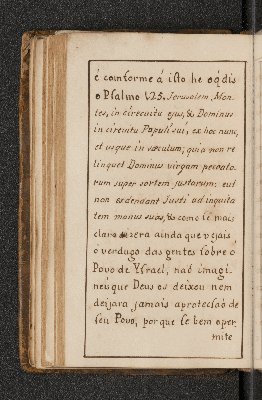 é conforme á isto he oq̃ dis
o Psalmo 125. Jerusalem, Mon-
tes, in circcuitu ejus, & Dominus
in circuitu Populi sui, ex hoc nunc,
et usque in sæculum; quia non re
linquet Dominus virgam peccato-
rum super sortem justorum: eut
non extendant Justi ad inquita
tem manus suas, & como lé mais
claro ainda que vejais
ó verdugo das gentes sobre ó
Povo de Ysrael, naõ imagi-
neis que Deus os deixou nem
deijara jamais a protecsaõ de
seu Povo, porque se bem oper-
mite